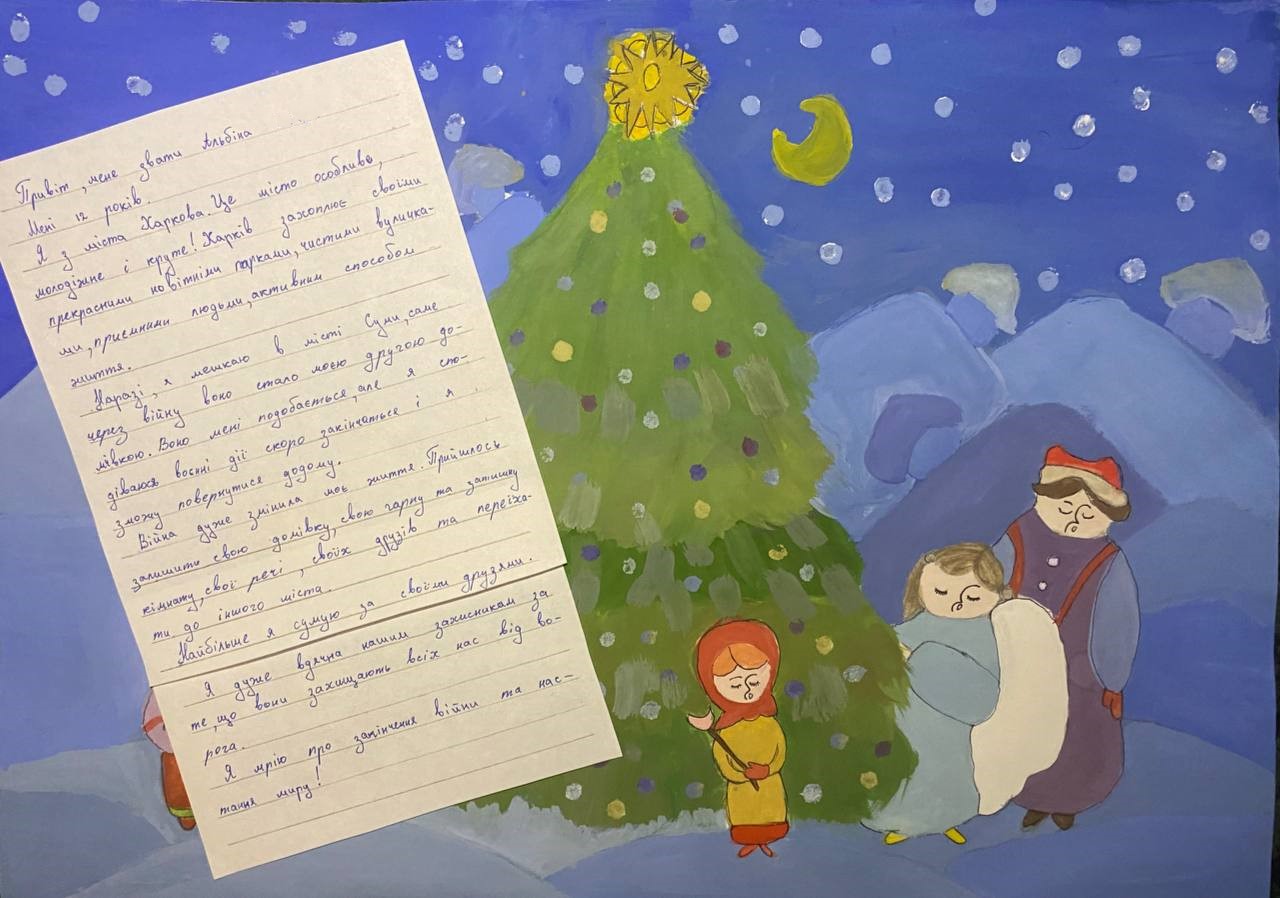 Привіт, мене звати Альбіна
Мені 12 років.
Я з міста Харкова. Це місто особливе,
молодіжне і круте! Харків захоплює своїми
прекрасними новітніми парками, чистими вуличка-
ми, приємними людьми, активним способом
життя.
Наразі, я мешкаю в місті Суми, саме
через війну воно стало моєю другою до-
мівкою. Воно мені подобається, але я спо-
діваюся воєнні дії скоро закінчаться і я
зможу повернутися додому.
Війна дуже змінила моє життя. Прийшлось
залишити свою домівку, свою гарну та затишну
кімнату, свої речі, своїх друзів та переїха-
ти до іншого міста.
Найбільше я сумую за своїми друзями.
Я дуже вдячна нашим захисникам за
те, що вони захищають всіх нас від во-
рога.
Я мрію про закінчення війни та нас-
тання миру!